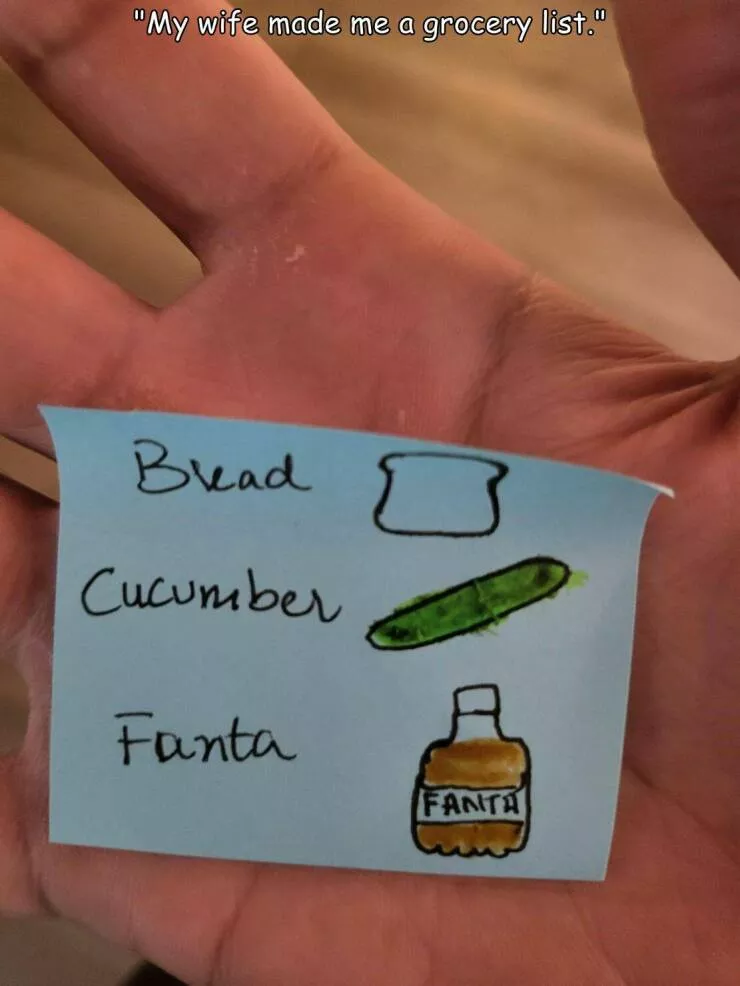 "My wife made me a grocery list."
Bread
Cucumber
Fanta
FANTA